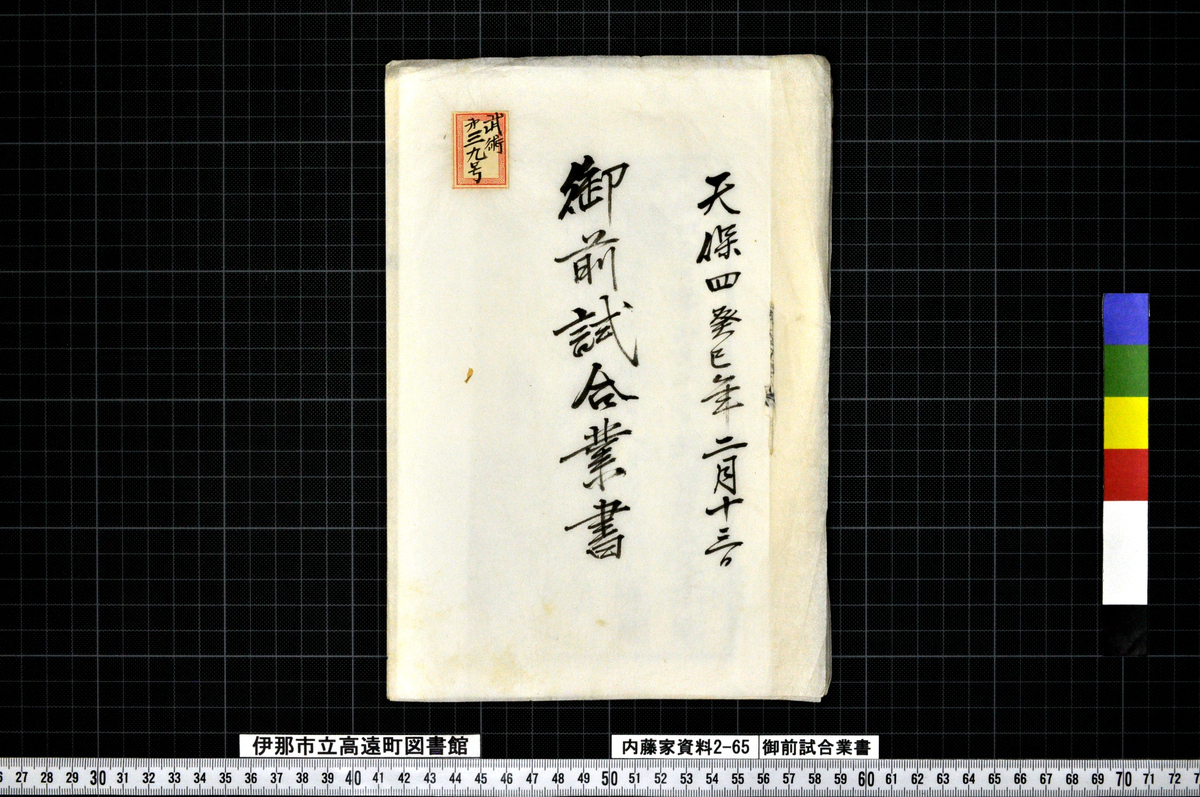 天保四癸巳年二月十三日
御前試合業書
武術
才三九号
伊那市立高遠町図書館
内藤家資料2-65 御前試合業書
26 27 28 29 30 31 32 33 34 35 36 37 38 39 40 41 42 43 44 45 46 47 48 49 50 51 52 53 54 55 56 57 58 59 60 61 62 63 64 65 66 67 68 69 70 71 72